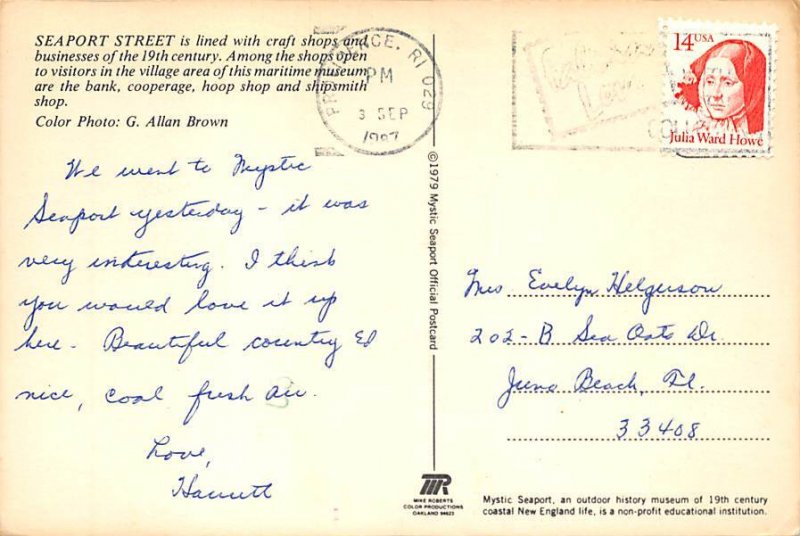 SEAPORT STREET is lined with craft shops and
businesses of the 19th century. Among the shops open
to visitors in the village area of this maritime museum
are the bank, cooperage, hoop shop and shipsmith
shop.
Color Photo: G. Allan Brown
We went to Mystic
Seaport yesterday - it was
very interesting. I think
you would love it up
here. Beautiful country &
nice, cool fresh air.
Love,
Harriett
PROVIDENCE, RI 029
PM
3 SEP
1987
14 USA
Julia Ward Howe
©1979 Mystic Seaport Official Postcard
Mrs Evelyn Helgerson
202-B Sea Oats Dr.
Juno Beach, Fl.
33408
MIKE ROBERTS
COLOR PRODUCTIONS
OAKLAND 94623
Mystic Seaport, an outdoor history museum of 19th century
coastal New England life, is a non-profit educational institution.